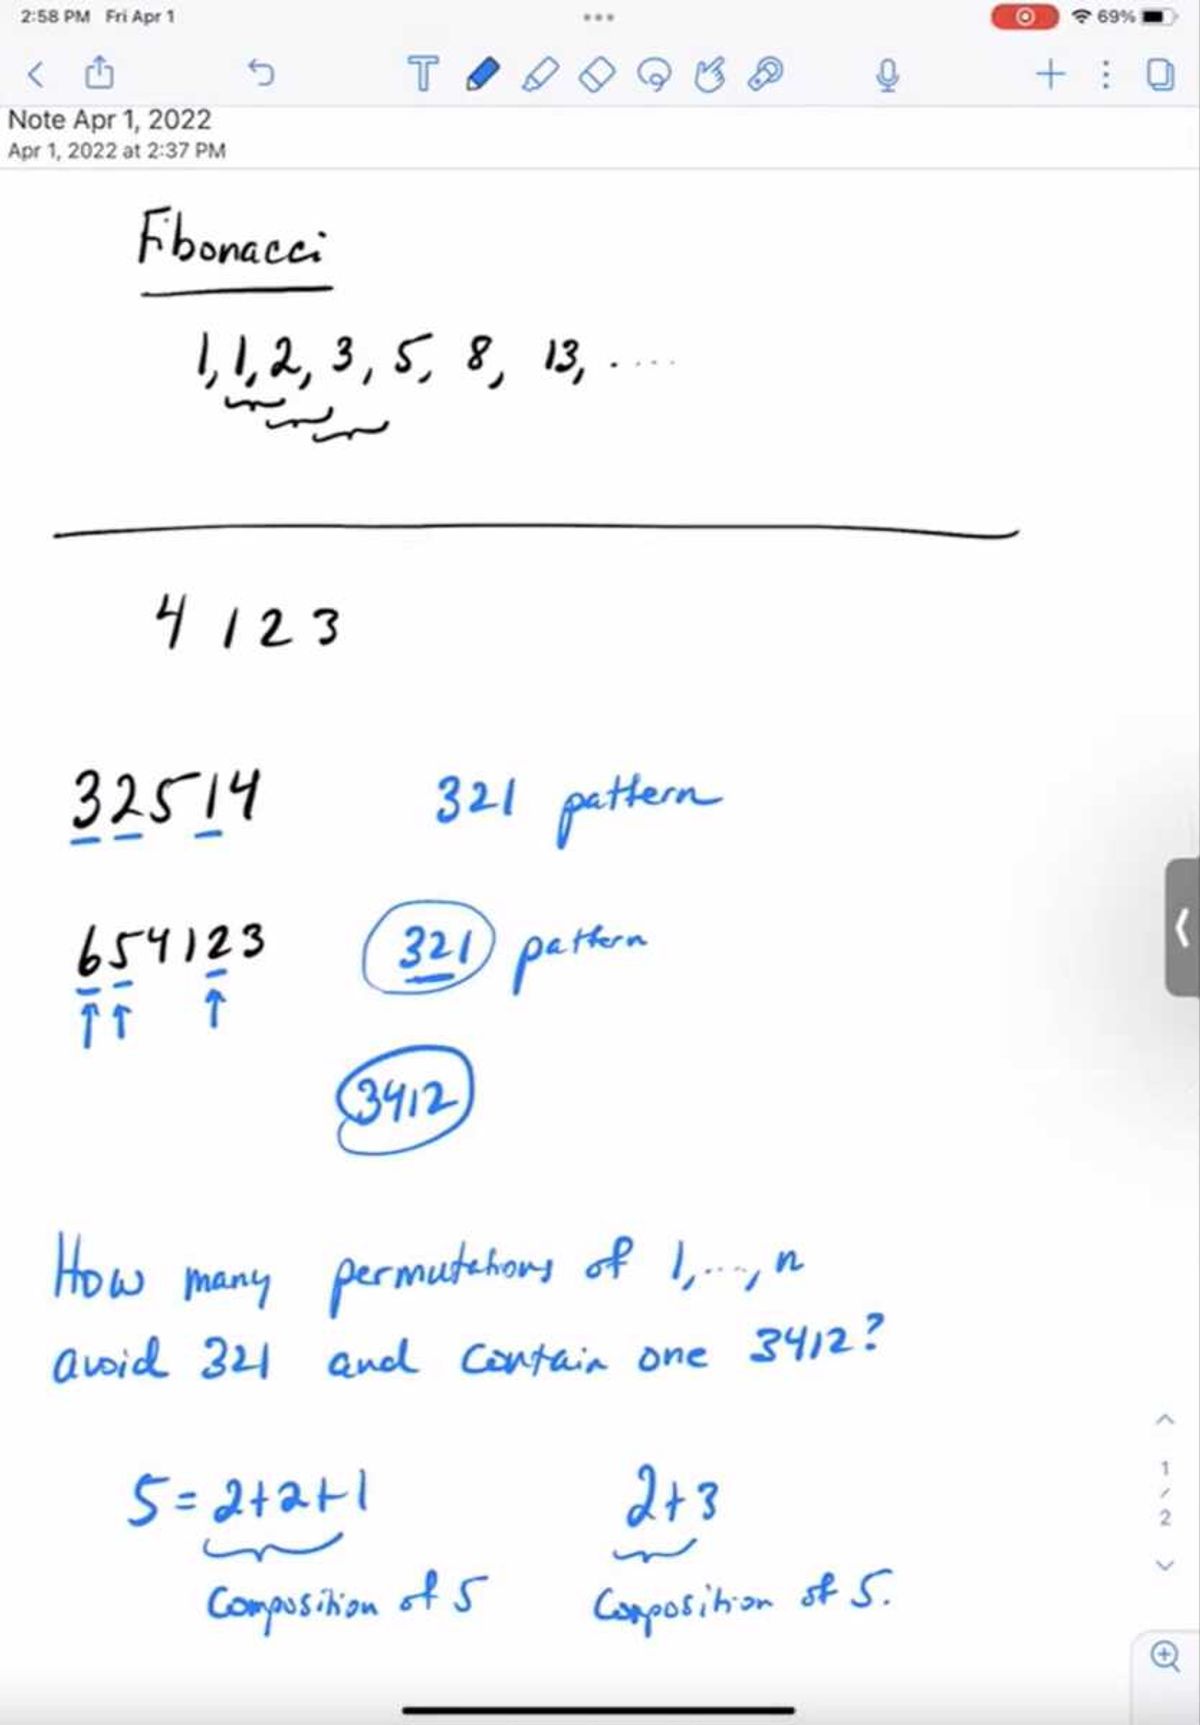 2:58 PM Fri Apr 1
69%
T
Note Apr 1, 2022
Apr 1, 2022 at 2:37 PM
Fibonacci
1, 1, 2, 3, 5, 8, 13, ....
4 1 2 3
32514 321 pattern
654123 321 pattern
3412
How many permutations of 1, ..., n
avoid 321 and contain one 3412?
5 = 2+2+1 2+3
Composition of 5 Composition of 5.
1
/
2